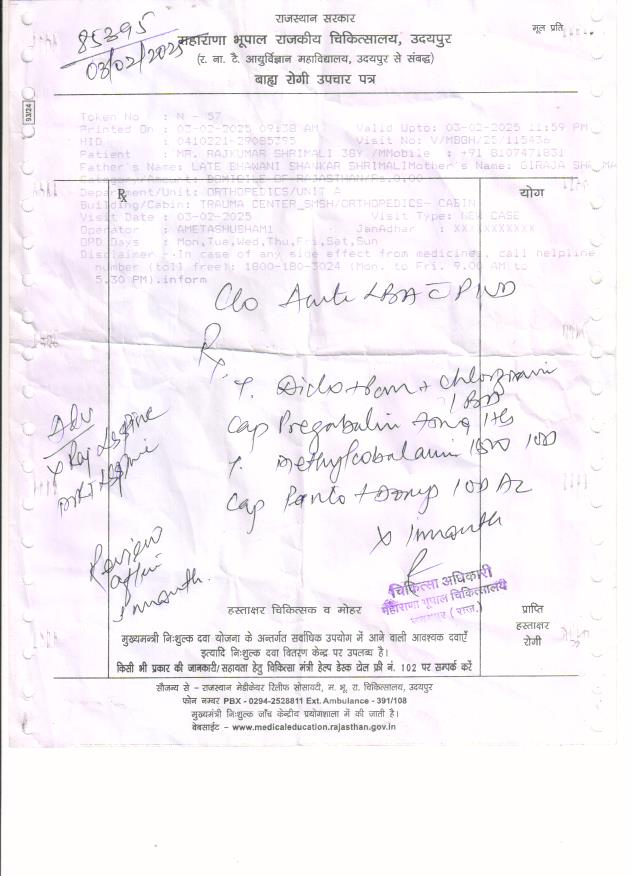 राजस्थान सरकार
मूल प्रति
85395
03/02/2025
महाराणा भूपाल राजकीय चिकित्सालय, उदयपुर
(र. ना. टै. आयुर्विज्ञान महाविद्यालय, उदयपुर से संबद्ध)
बाह्य रोगी उपचार पत्र
93/24
Token No : N - 57
Printed On : 03-02-2025 09:38 AM Valid Upto: 03-02-2025 11:59 PM
HID : Visit No: V/MBGH/25/115436
Patient : MR. RAJKUMAR SHRIMALI 38Y /M Mobile : +91 8107471831
Father's Name: LATE BHAWANI SHANKAR SHRIMALI Mother's Name: GIRAJA
Department/Unit: ORTHOPEDICS/UNIT A
Building/Cabin: TRAUMA CENTER_SMSH/ORTHOPEDICS- CABIN
Visit Date : 03-02-2025 Visit Type: NEW CASE
Operator : AMETASHUSHAM1 JanAadhar : XX
OPD Days : Mon,Tue,Wed,Thu,Fri,Sat,Sun
Disclaimer - In case of any side effect from medicines, call helpline
number (toll free): 1800-180-3024 (Mon. to Fri. 9.00 AM to
5.30 PM).inform
Rx
योग
C/o Acute LBA
Rx
T. Diclo + Pam + Chlorz
1 BD
Cap Pregabalin 1 HS
T. Methylcobalamin 1500 1 OD
Cap Panto + Domp 1 OD AC
x 1 month
Adv
X Ray LS spine
MRI LS spine
Review
after
1 month.
चिकित्सा अधिकारी
महाराणा भूपाल चिकित्सालय
(राज.)
हस्ताक्षर चिकित्सक व मोहर
प्राप्ति
हस्ताक्षर
रोगी
मुख्यमन्त्री निःशुल्क दवा योजना के अन्तर्गत सर्वाधिक उपयोग में आने वाली आवश्यक दवाएँ
इत्यादि निःशुल्क दवा वितरण केन्द्र पर उपलब्ध है।
किसी भी प्रकार की जानकारी/सहायता हेतु चिकित्सा मंत्री हेल्प डेस्क टोल फ्री नं. 102 पर सम्पर्क करें
सौजन्य से - राजस्थान मेडीकेयर रिलीफ सोसायटी, म. भू. रा. चिकित्सालय, उदयपुर
फोन नम्बर PBX - 0294-2528811 Ext. Ambulance - 391/108
मुख्यमंत्री निःशुल्क जाँच केन्द्रीय प्रयोगशाला में की जाती है।
वेबसाईट - www.medicaleducation.rajasthan.gov.in